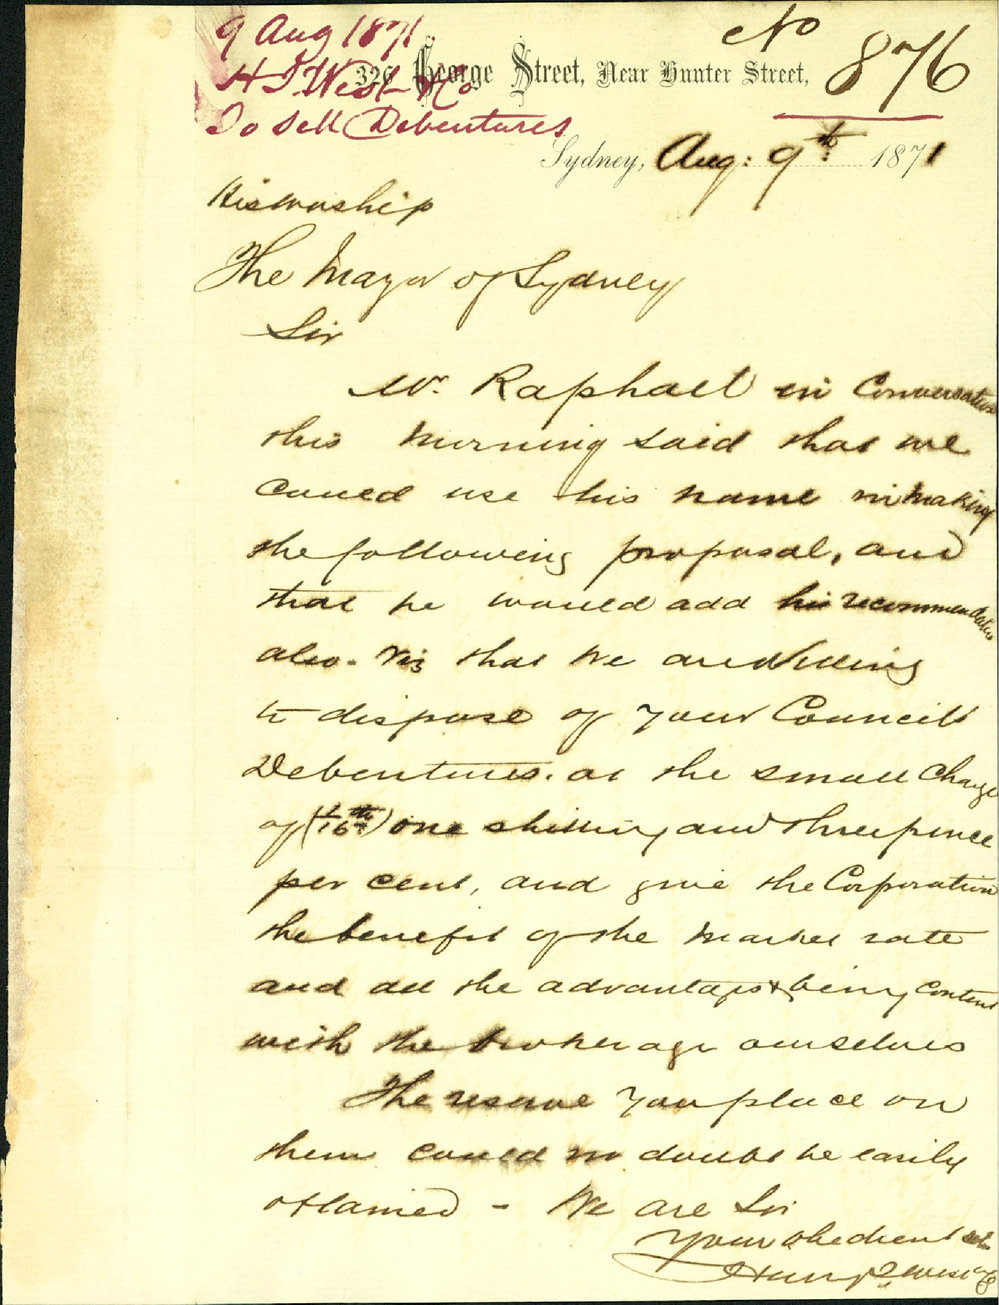 9 Aug 1871
H J West & Co
To Sell Debentures
No 876
326 George Street, Near Hunter Street,
Sydney, Aug: 9th 1871
His Worship
The Mayor of Sydney
Sir
Mr. Raphael in Conversation
this morning said that we
could use his name in making
the following proposal, and
that he would add his recommendation
also. Viz that we are willing
to dispose of your Councils
Debentures. at the small charge
of (1/16th) one shilling and threepence
per cent, and give the Corporation
the benefit of the market rate
and all the advantages & being content
with the brokerage ourselves
The reserve you place on
them could no doubt be easily
obtained - We are Sir
Your obedient
Henry J West & Co